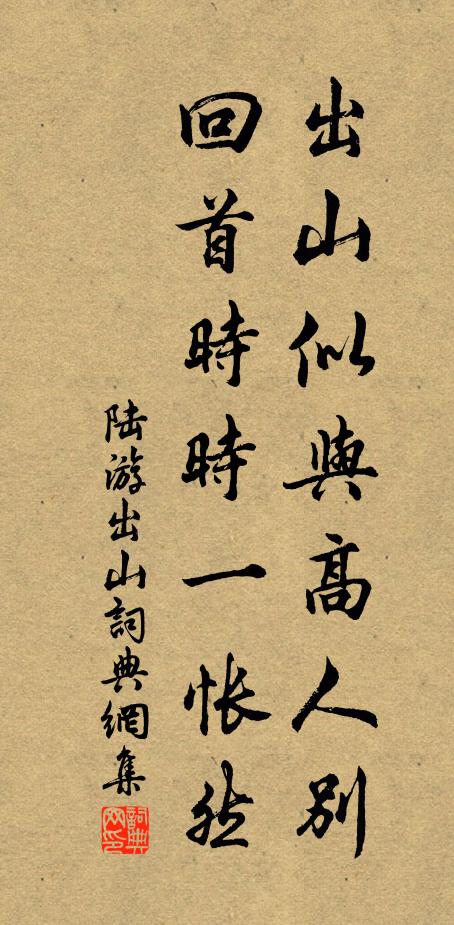 出山似與高人別
回首時時一悵然
陸游出山詞典網集
詞典網印